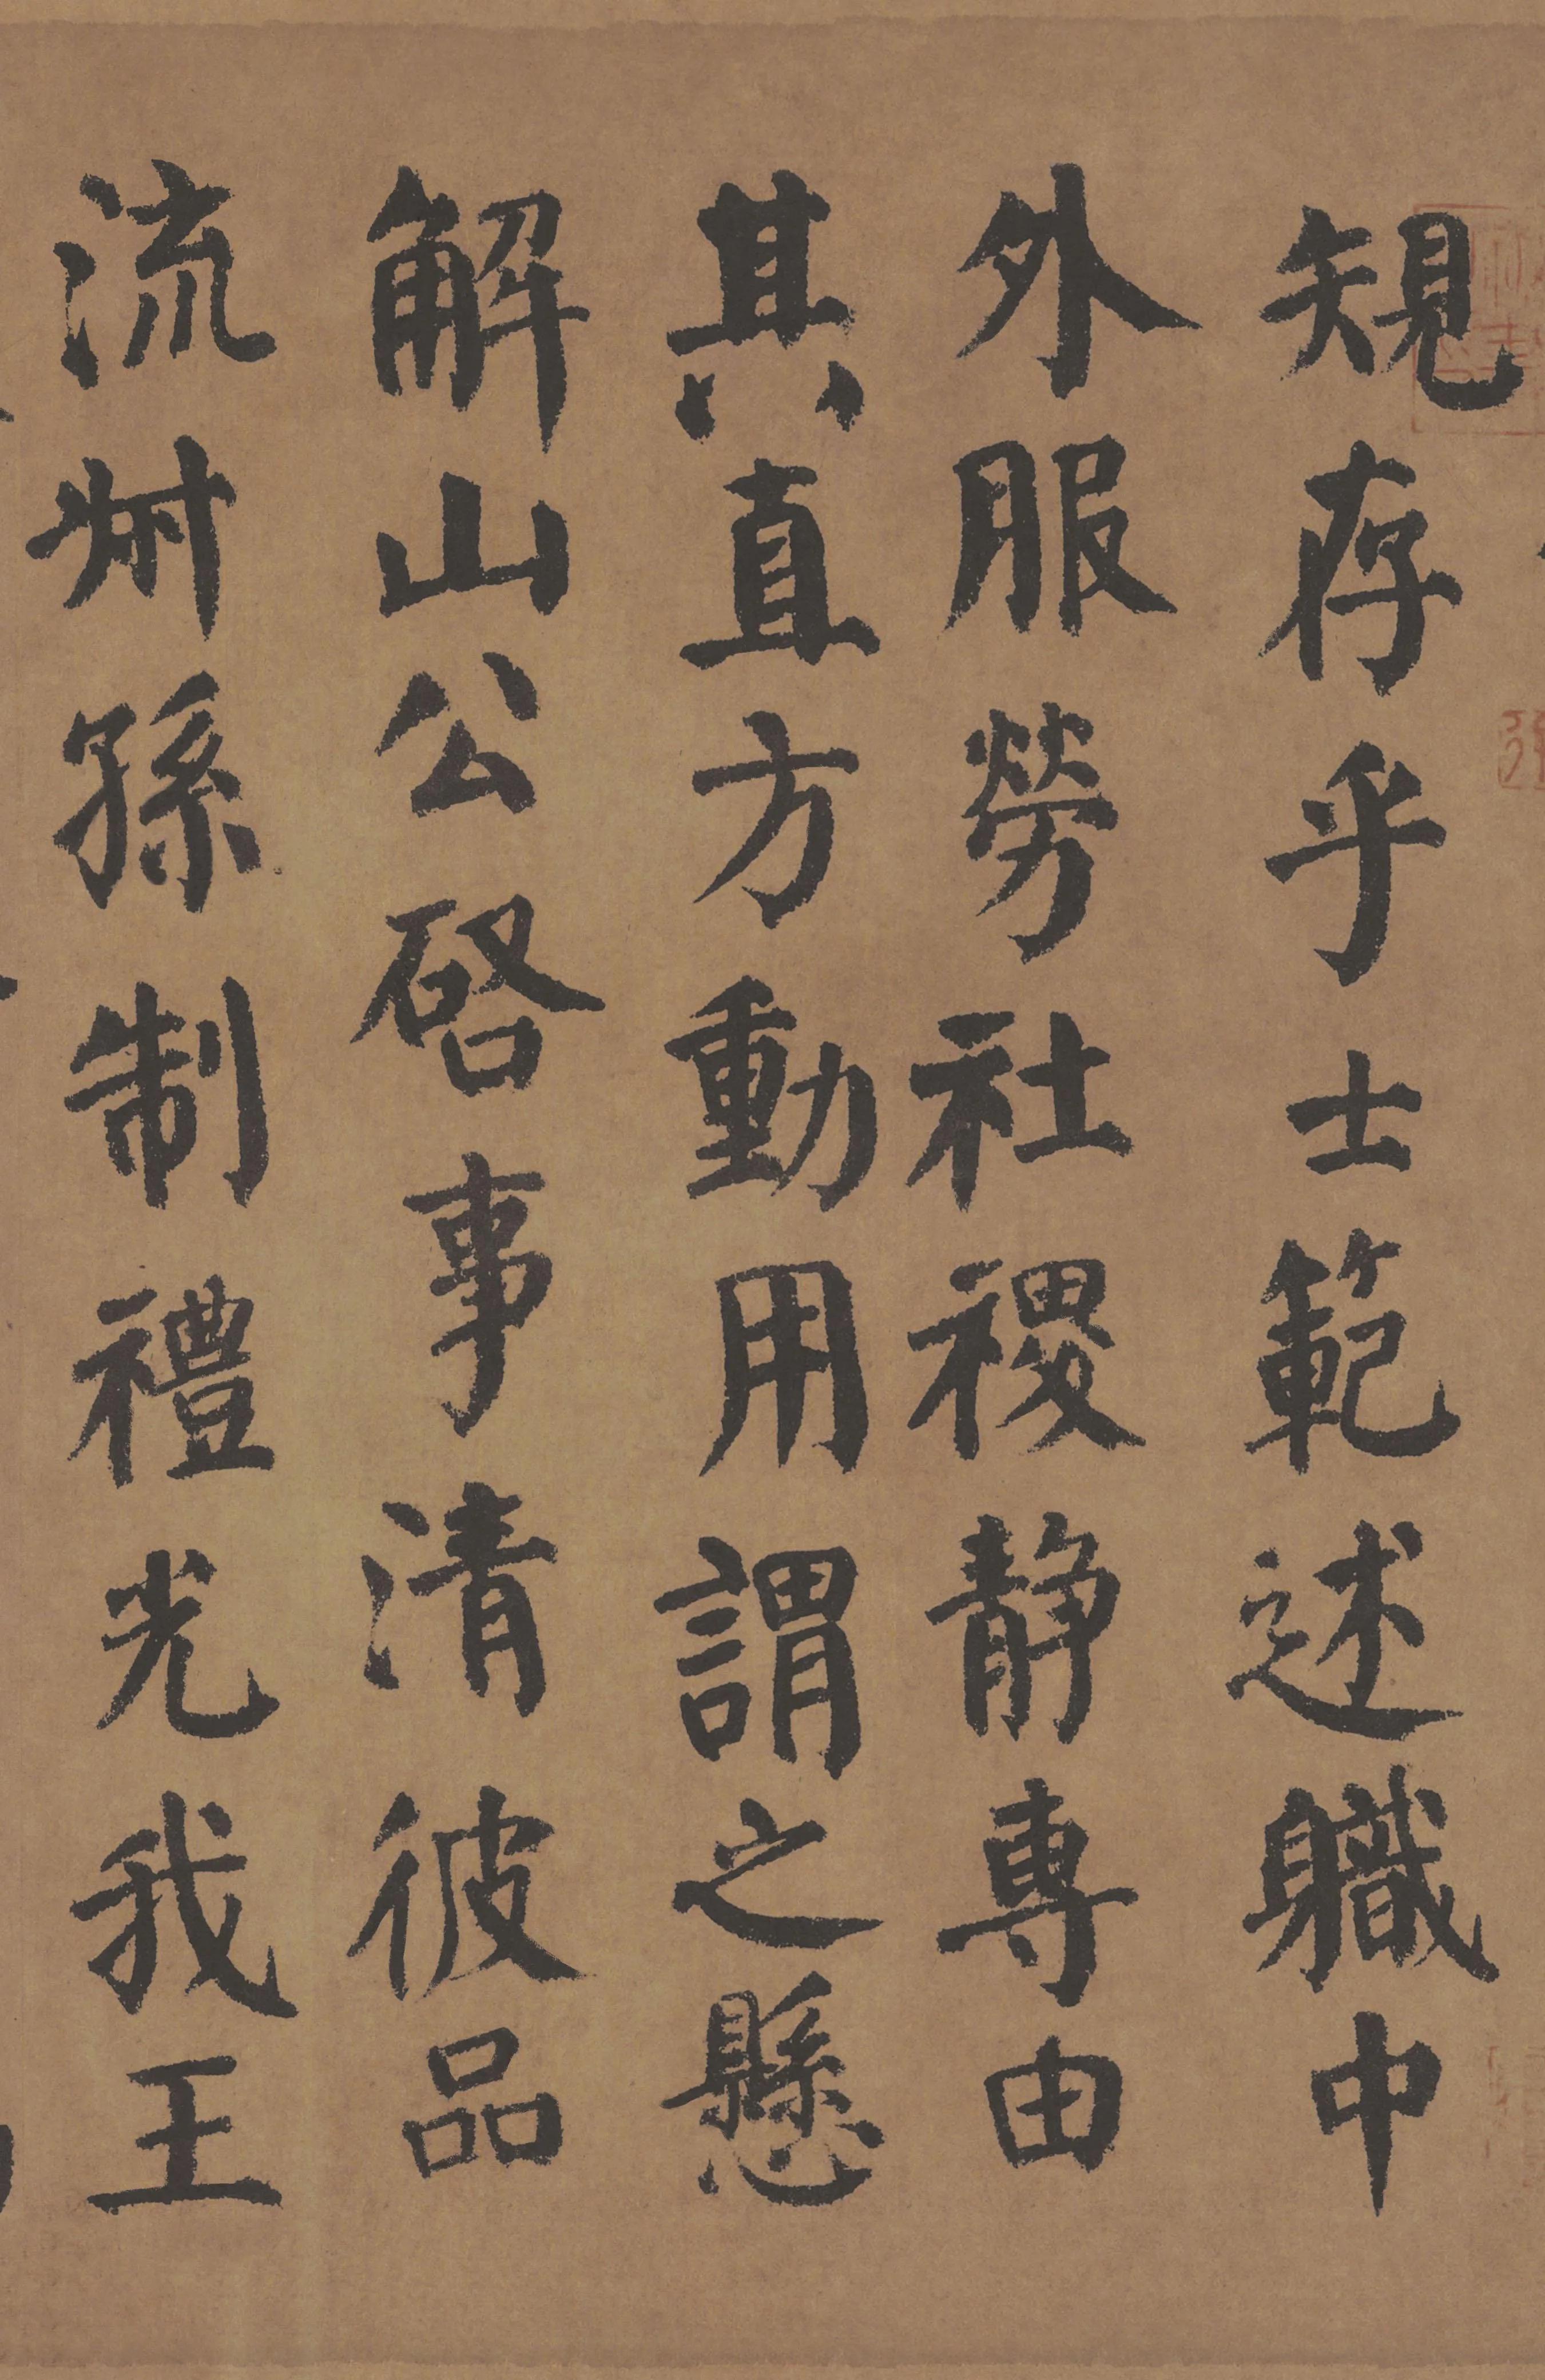 規存乎士範述職中
外服勞社稷靜專由
其直方動用謂之懸
解山公啓事清彼品
流叔孫制禮光我王